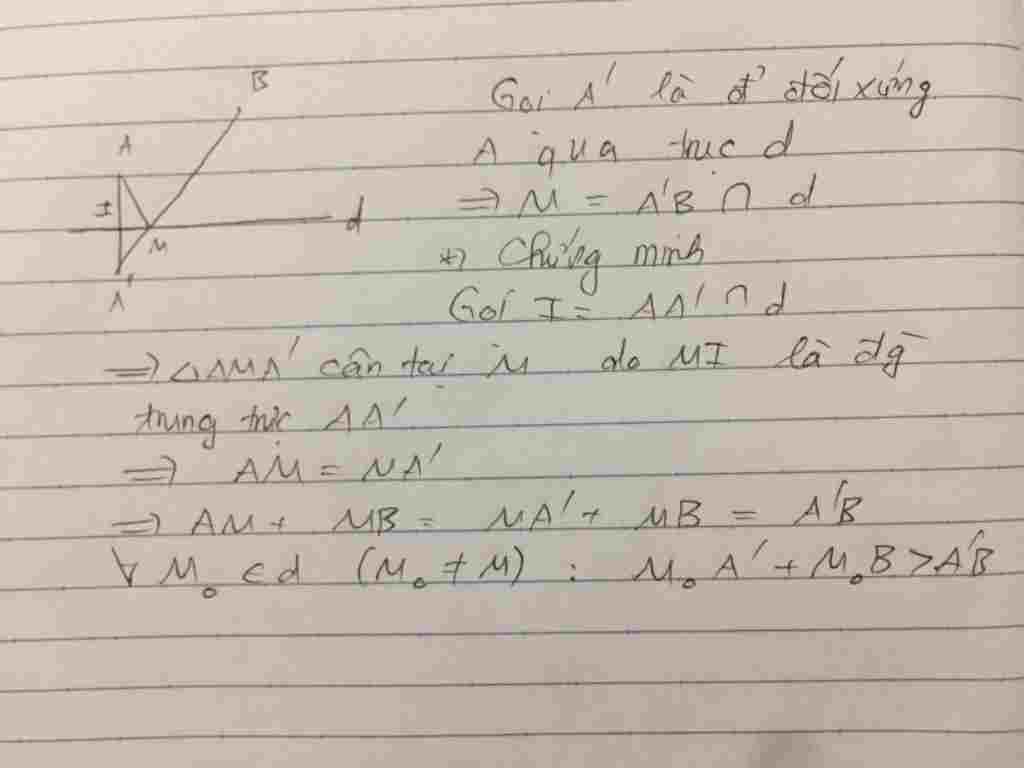 B
A
I
d
M
A'
Gọi A' là đ' đối xứng
A qua trục d
=> M = A'B ∩ d
*) Chứng minh
Gọi I = AA' ∩ d
=> △AMA' cân tại M do MI là đg
trung trực AA'
=> AM = MA'
=> AM + MB = MA' + MB = A'B
∀ M₀ ⊂ d (M₀ ≠ M) : M₀A' + M₀B > A'B